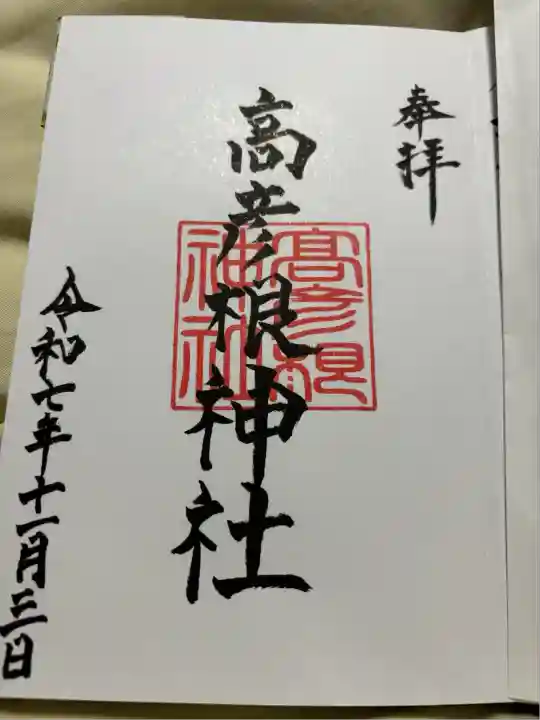 奉拝
高彦根神社
高彦根
神社
令和七年十一月三日